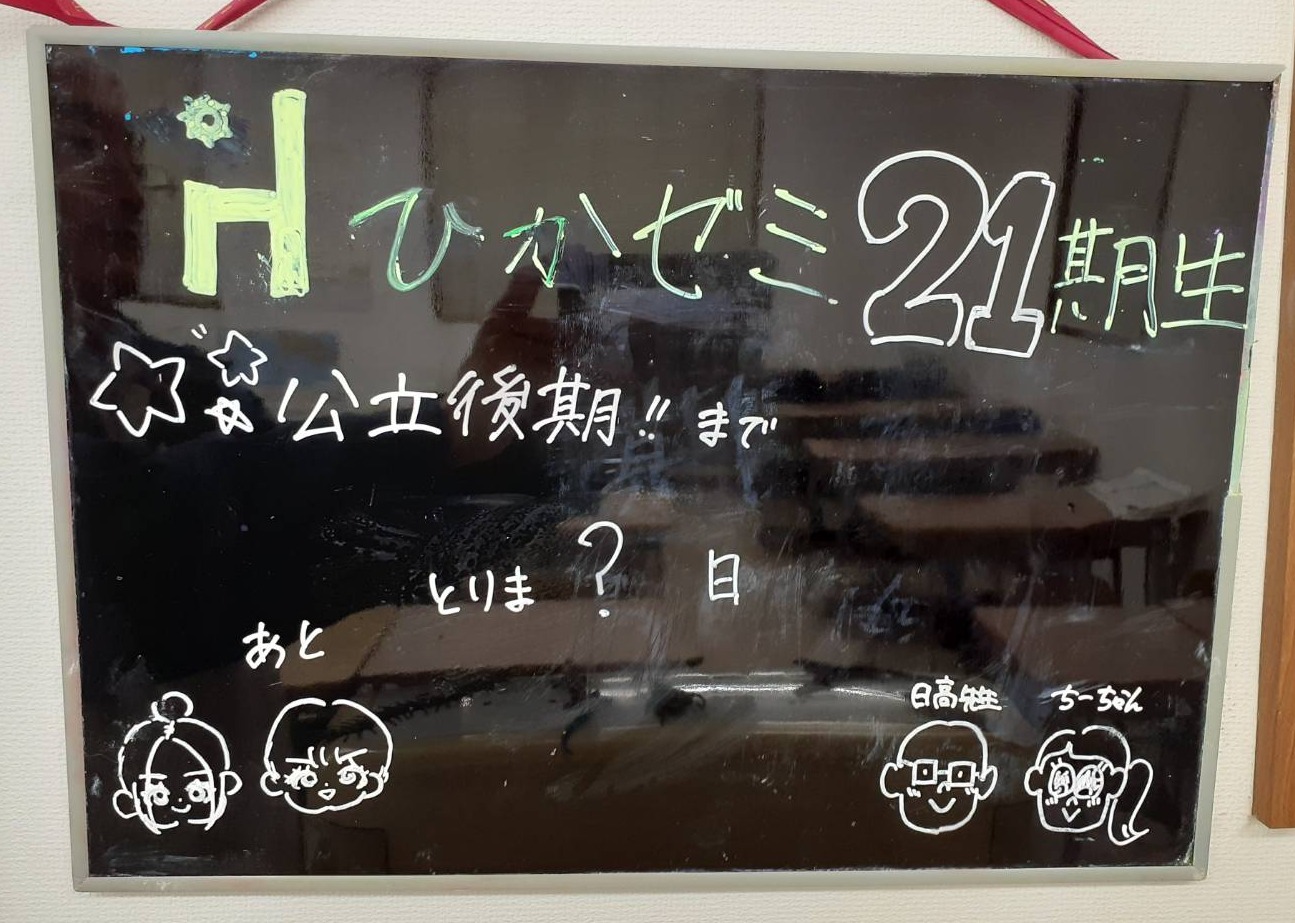 H ひかゼミ 21期生
公立後期!! まで
とりま ? 日
あと
日高先生 ちーちゃん